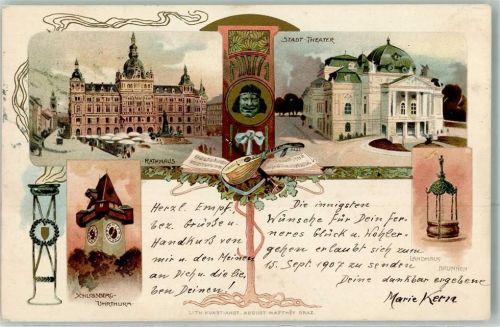 STADT-THEATER
RATHHAUS
SCHLOSSBERG-
UHRTHURM
Herzl. Empf.
bez. Grüße u.
Handkuß von
mir u. den Meinen
an Dich u. die lie-
ben Deinen!
Die innigsten
Wünsche für Dein fer-
neres Glück u. Wohler-
gehen erlaubt sich zum
15. Sept. 1907 zu senden
Deine dankbar ergebene
Marie Kern
LANDHAUS
BRUNNEN
LITH. KUNSTANST. AUGUST MATTHEY GRAZ.